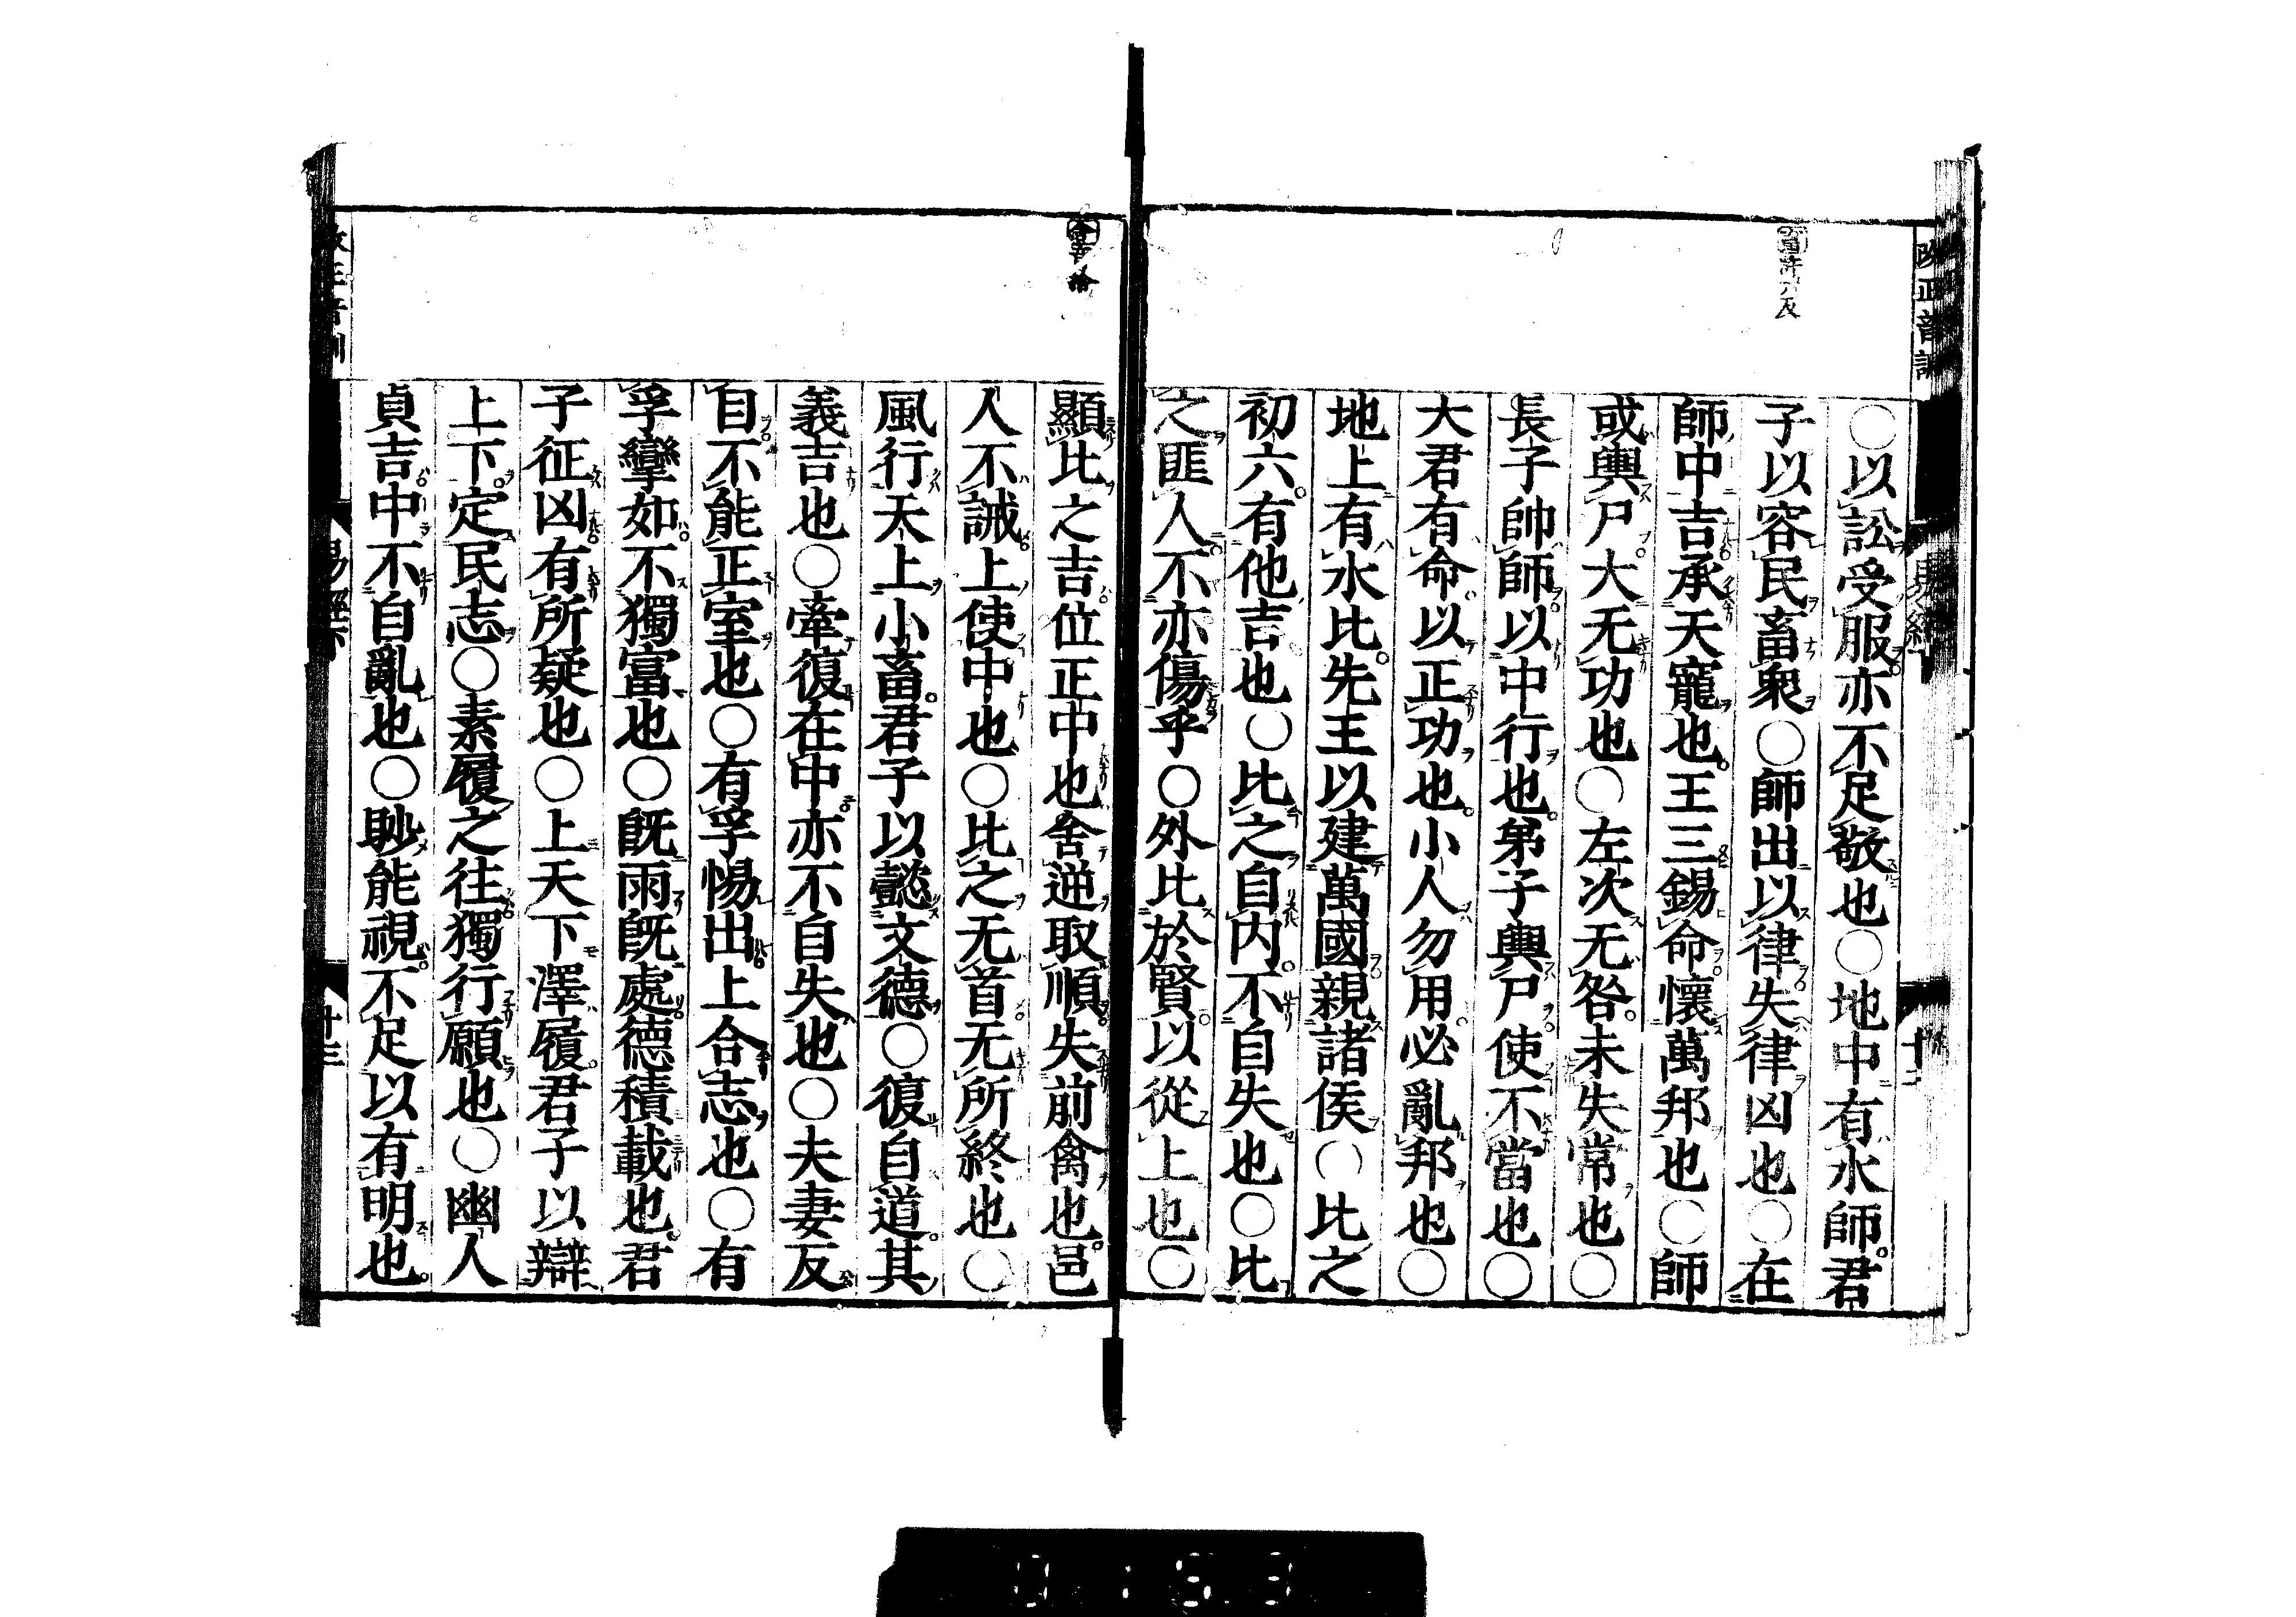 改正音訓
易經下
十二
畜許六反
○以訟受服亦不足敬也○地中有水師君
子以容民畜衆○師出以律失律凶也○在
師中吉承天寵也王三錫命懷萬邦也○師
或輿尸大无功也○左次无咎未失常也○
長子帥師以中行也弟子輿尸使不當也○
大君有命以正功也小人勿用必亂邦也○
地上有水比先王以建萬國親諸侯○比之
初六有他吉也○比之自内不自失也○比
之匪人不亦傷乎○外比於賢以從上也○
舍音捨
顯比之吉位正中也舍逆取順失前禽也邑
人不誡上使中也○比之无首无所終也○
風行天上小畜君子以懿文德○復自道其
義吉也○牽復在中亦不自失也○夫妻反
目不能正室也○有孚惕出上合志也○有
孚攣如不獨富也○既雨既處德積載也君
子征凶有所疑也○上天下澤履君子以辯
上下定民志○素履之往獨行願也○幽人
貞吉中不自亂也○眇能視不足以有明也
改正音訓
易經下
十三
0153